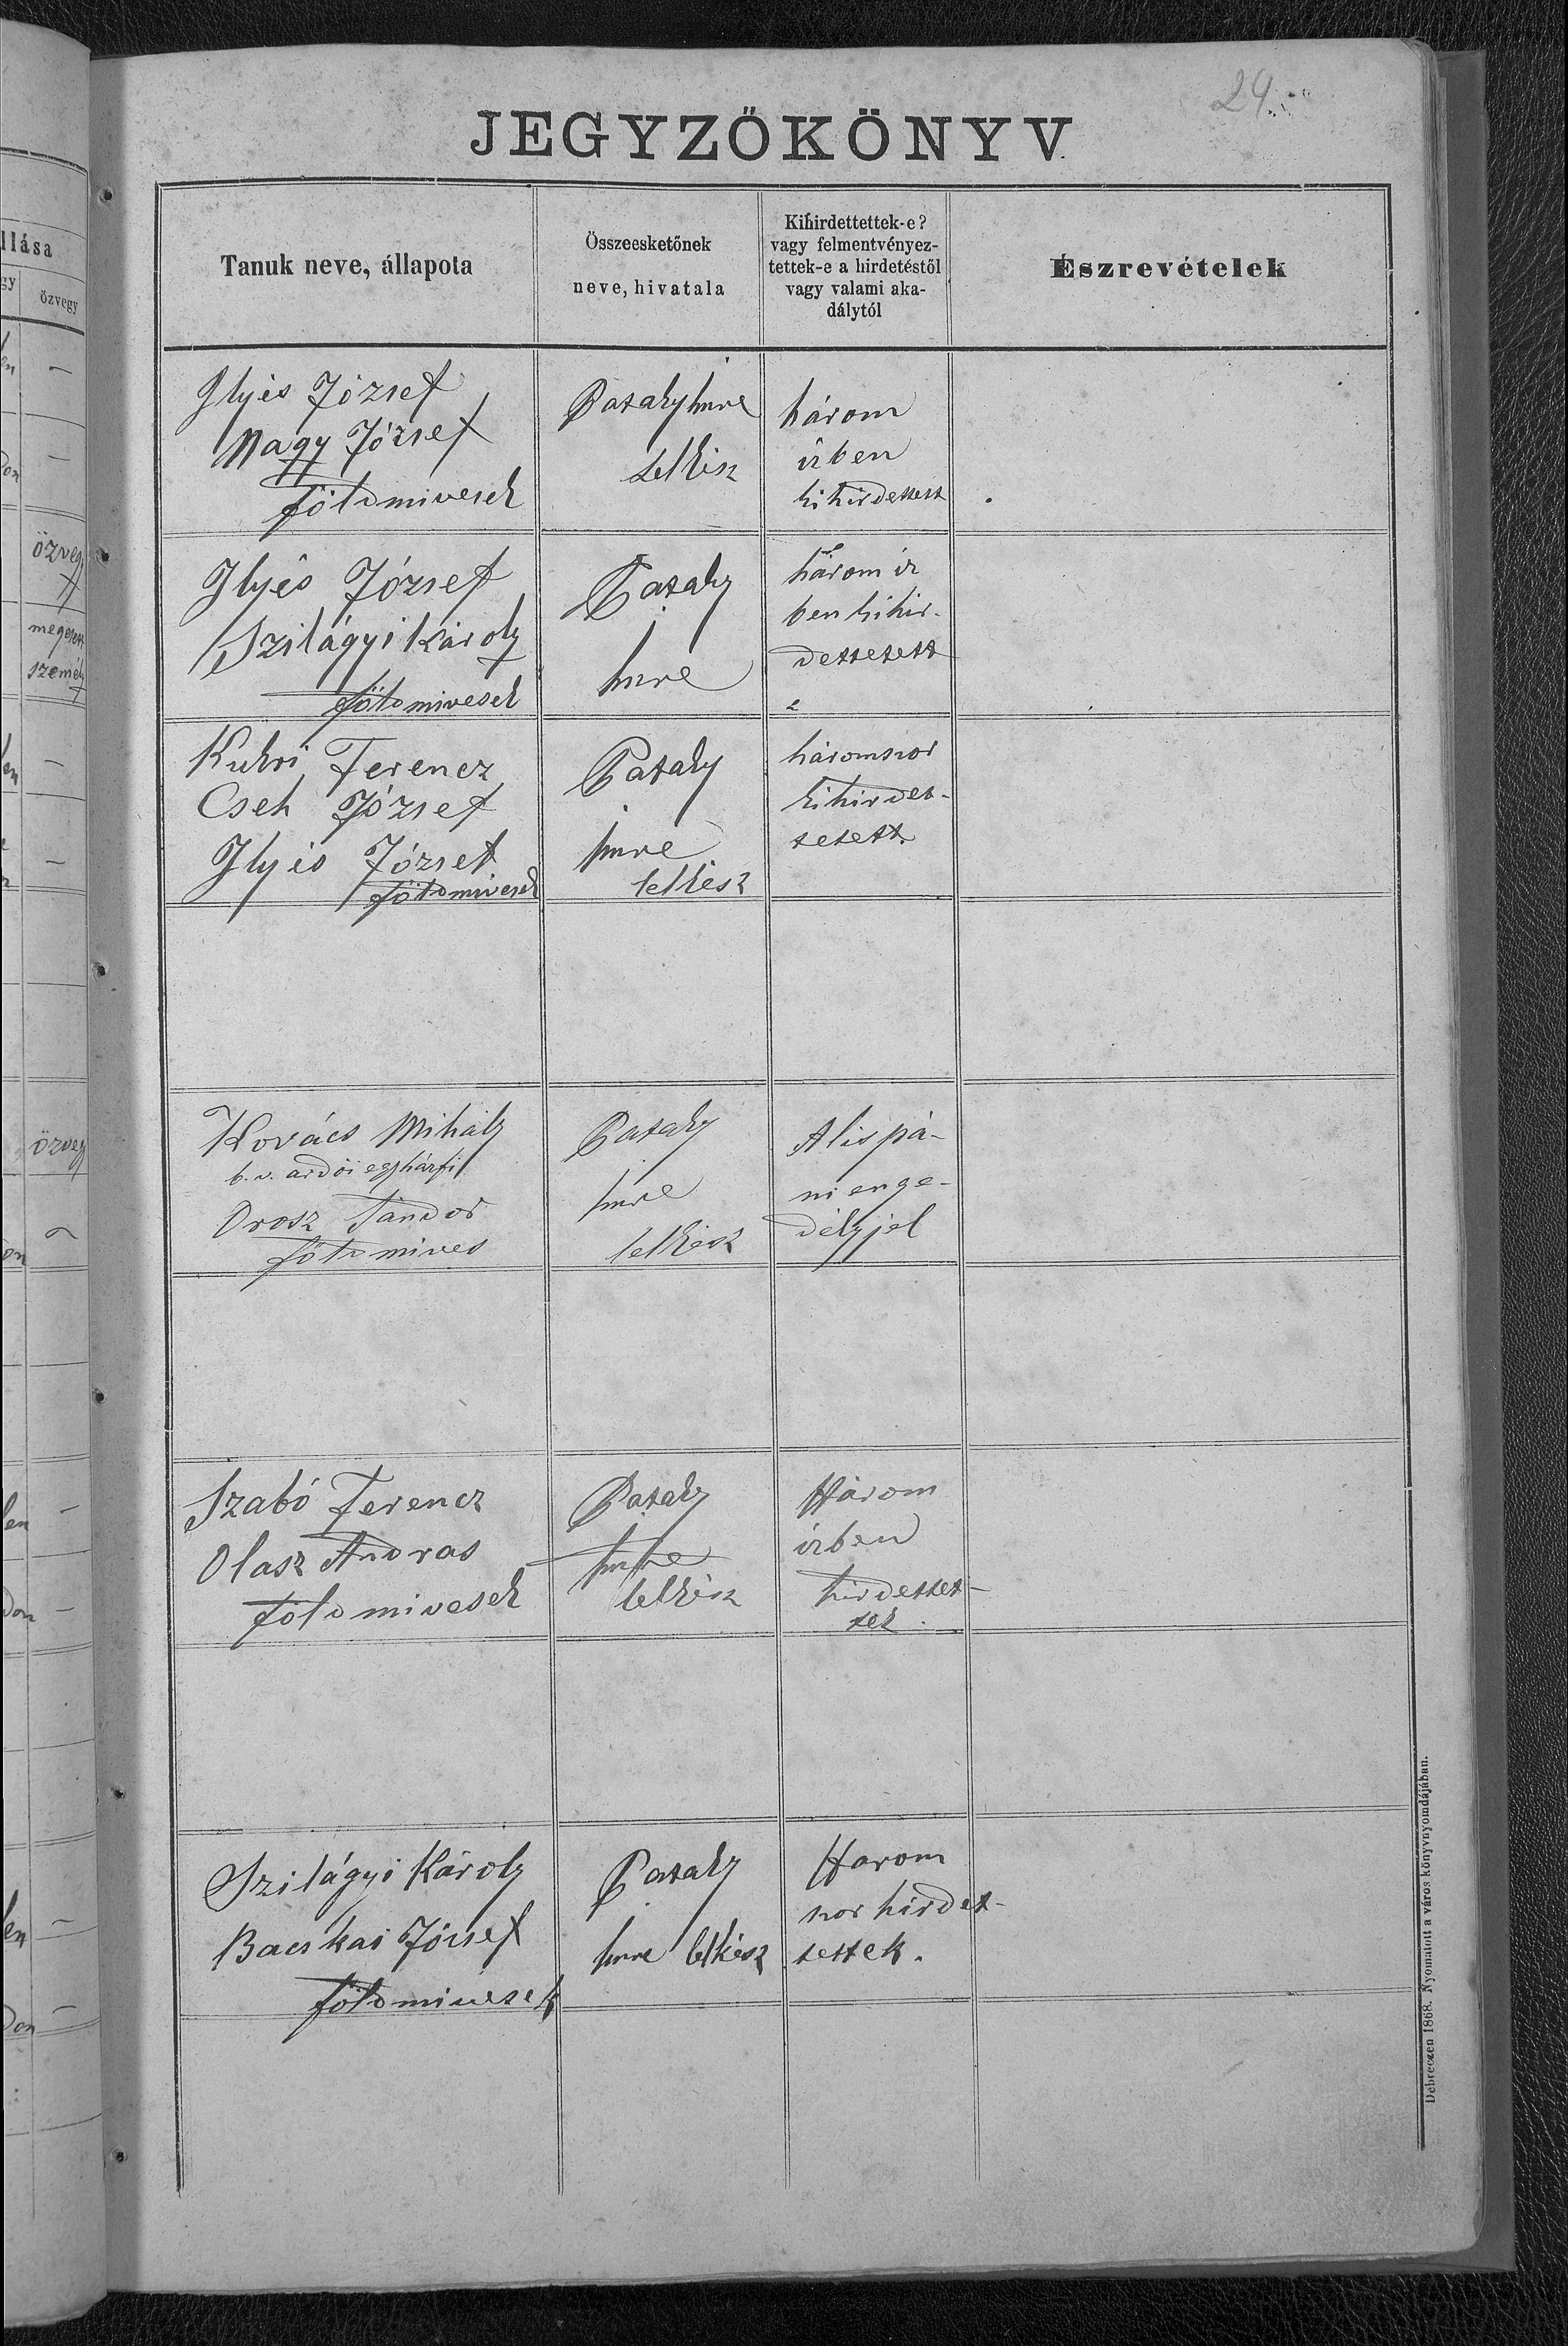 llása
gy
özvegy
özvegy
megesett
személy
özvegy
29
JEGYZŐKÖNYV.
Tanuk neve, állapota
Összeesketőnek
neve, hivatala
Kihirdettettek-e?
vagy felmentvényez-
tettek-e a hirdetéstől
vagy valami aka-
dálytól
Észrevételek
Ilyés József
Nagy József
földmivesek
Pataky Imre
lelkész
három
ízben
kihirdetett
Ilyés József
Szilágyi Károly
földmivesek
Pataky
Imre
három íz
ben kihir-
dettetett
Ferencz
Cseh József
Ilyés József
földmivesek
Pataky
Imre
lelkész
háromszor
kihirdet-
tetett
Kovács Mihály
b. v. ardói egyházfi
Orosz Sándor
földmives
Pataky
Imre
lelkész
Alispá-
ni enge-
délyjel
Szabó Ferencz
Olasz András
földmivesek
Pataky
Imre
lelkész
Három
ízben
hirdettet-
tek.
Szilágyi Károly
Bacskai József
földmivesek
Pataky
Imre lelkész
Harom
szor hirdet-
tettek.
Debreczen 1868. Nyomatott a város könyvnyomdájában.